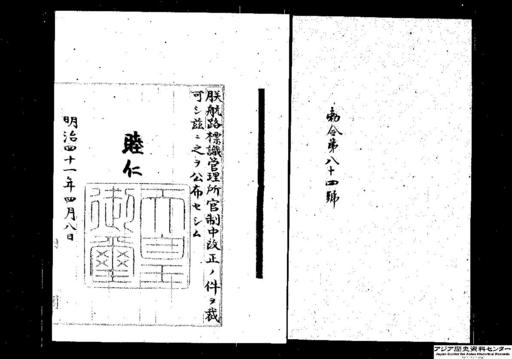 勅令第八十四號
朕航路標識管理所官制中改正ノ件ヲ裁
可シ茲ニ之ヲ公布セシム
睦仁
天皇御璽
明治四十一年四月八日
アジア歴史資料センター
Japan Center for Asian Historical Records